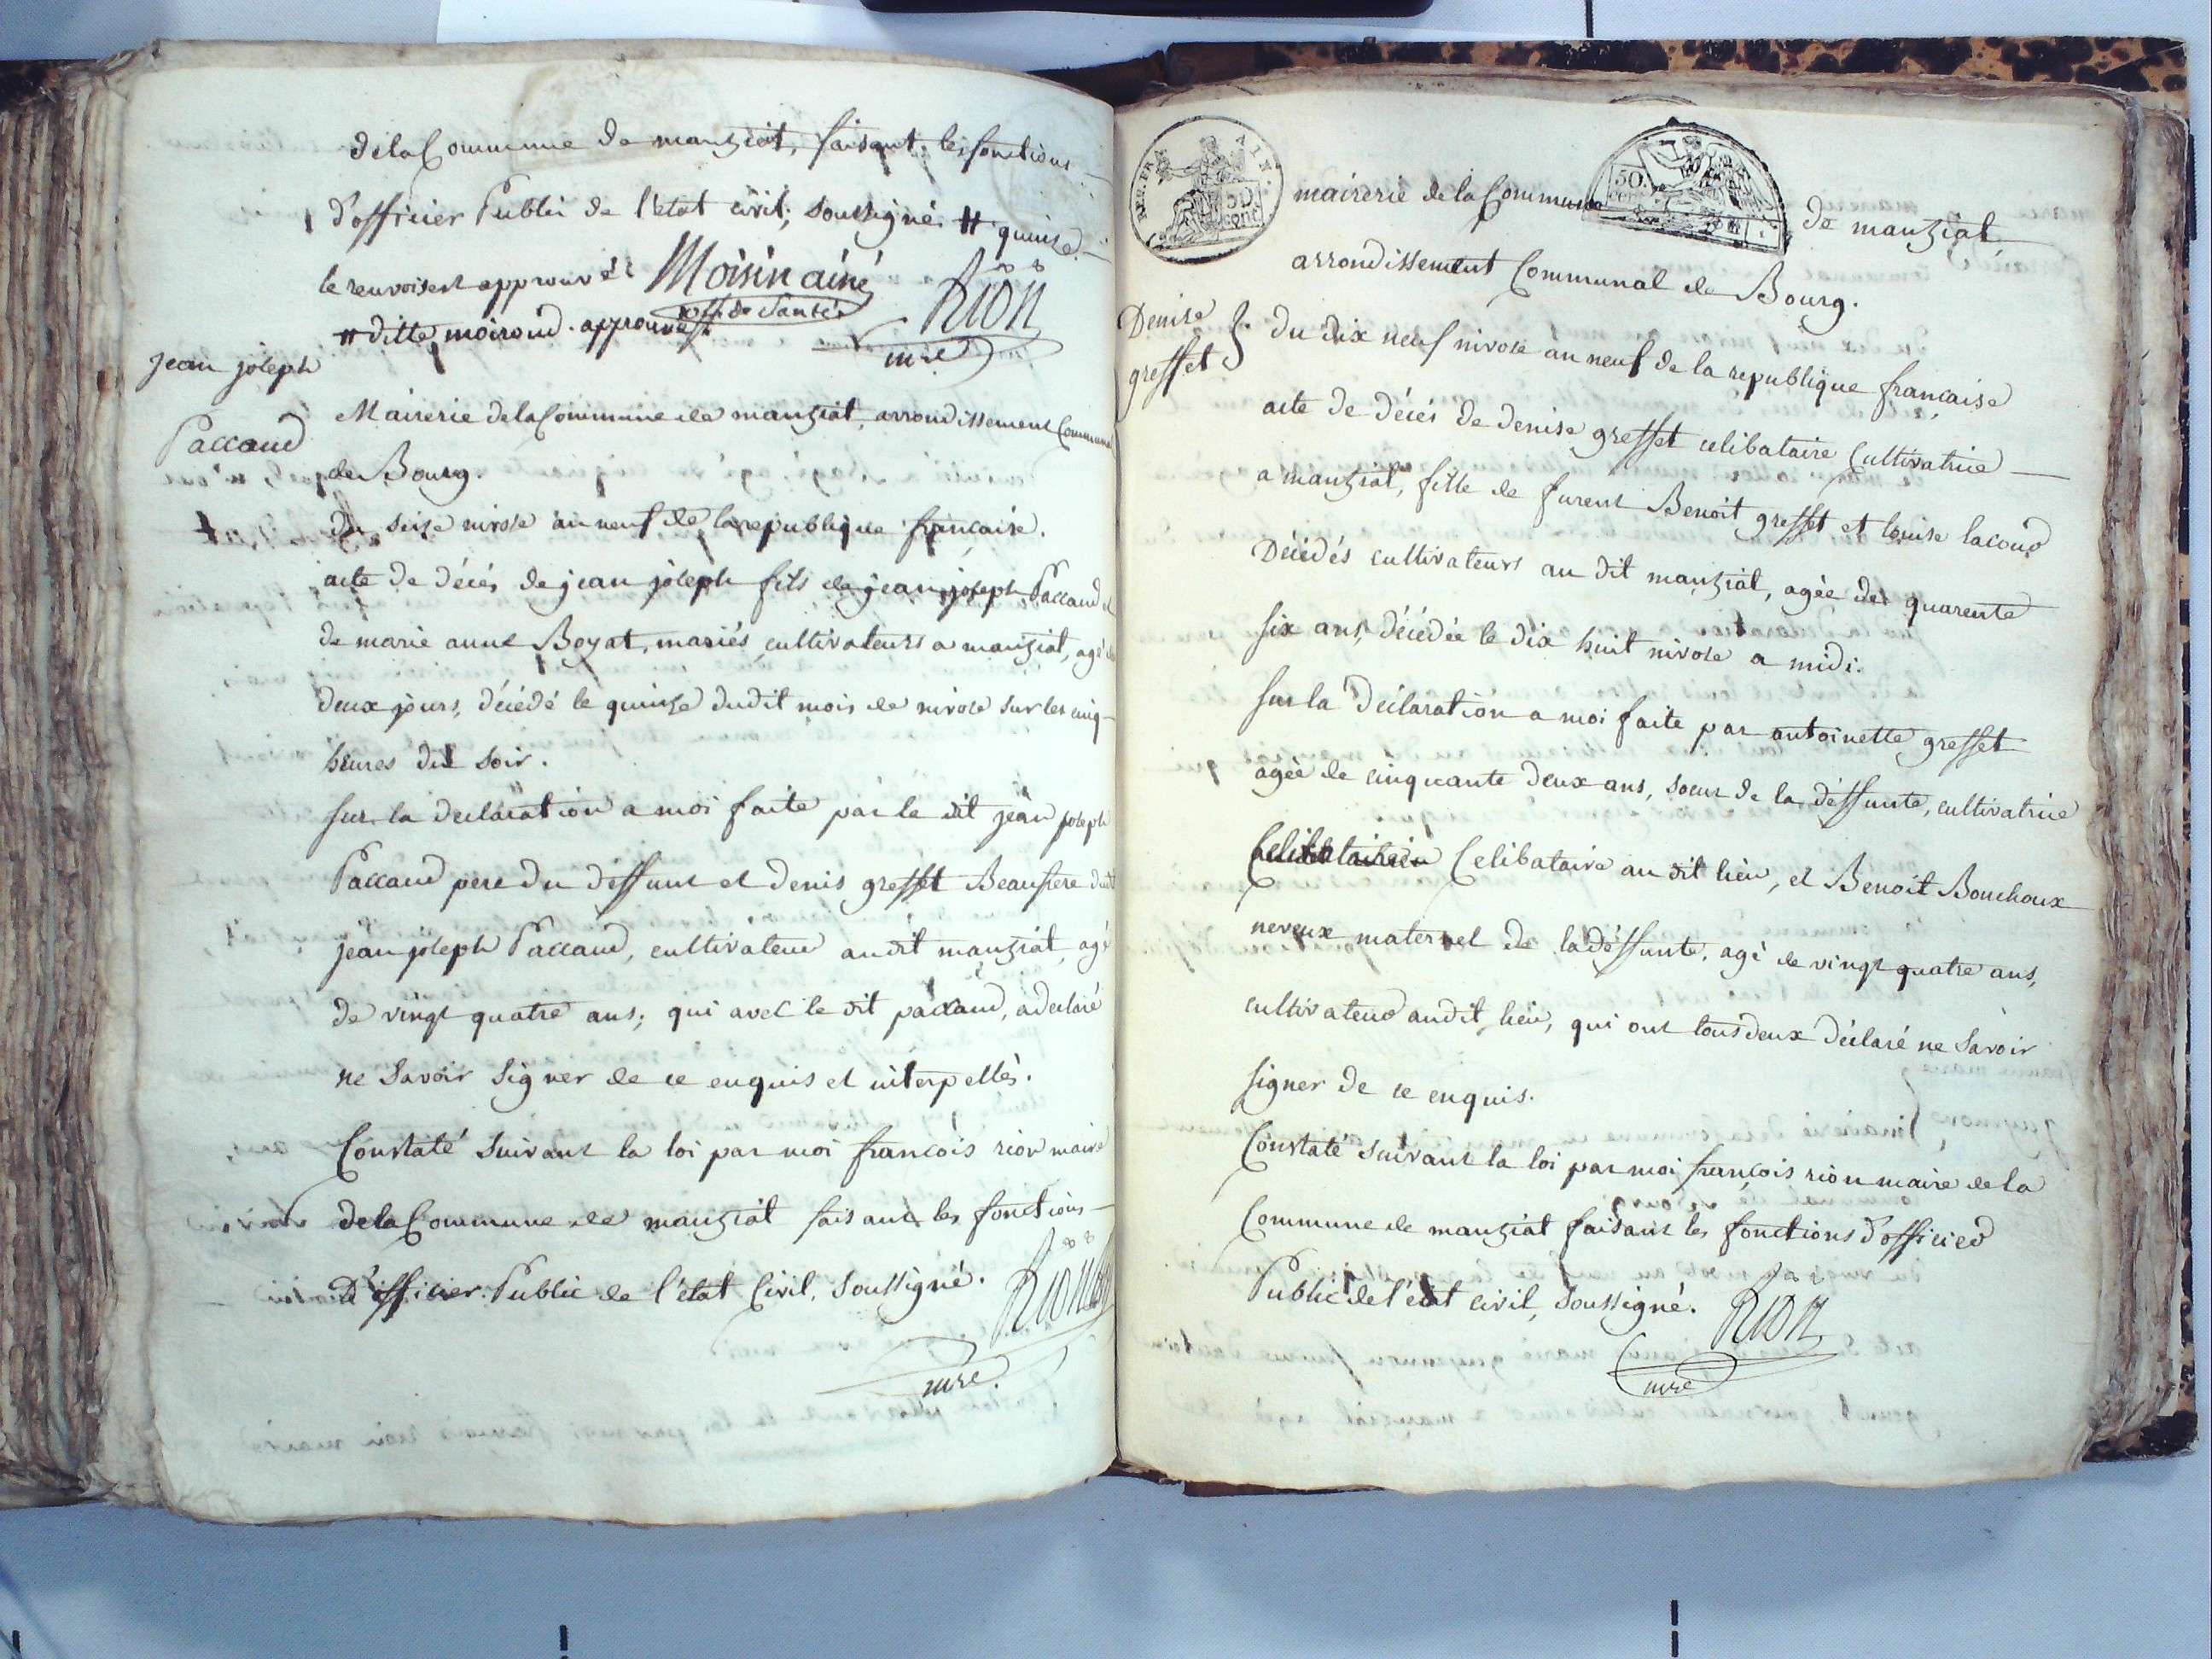 dela Commune de manziat, faisant les fonctions
d'officier Public de l'état civil, soussigné. # quinze.
le renvoi est approuvé
Moisin ainé
off. de santé
Rion
mre
# ditte moiroud. approuvé
jean joseph
Paccaud
Mairerie dela Commune de manziat, arrondissement Communal
de Bourg.
Du seise nivose an neuf de la republique francaise.
acte de décés de jean joseph fils de jean joseph Paccaud et
de marie anne Boyat, mariés cultivateurs a manziat, agé de
deux jours, décédé le quinze dudit mois de nivose sur les cinq
heures du soir.
sur la declaration a moi faite par le dit jean joseph
Paccaud pere du deffunt et denis gresset Beaufrere dudit
jean joseph Paccaud, cultivateur audit manziat, agé
de vingt quatre ans; qui avec le dit paccaud, a declaré
ne savoir signer de ce enquis et interpellés.
Constaté suivant la loi par moi francois rion maire
dela Commune de manziat faisant les fonctions
d'officier Public de l'état Civil, soussigné.
Rion
mre.
REP. FRA
AIN.
50
cent.
50.
cen
mairerie de la Commune de manziat
arrondissement Communal de Bourg.
Denise
gresset
du dix neuf nivose an neuf de la republique francaise
acte de décés de denise gresset celibataire Cultivatrice
a manziat, fille de furent Benoit gresset et louise lacoud
Décédés cultivateurs au dit manziat, agée de quarente
six ans, décédée le dix huit nivose a midi.
sur la Déclaration a moi faite par antoinette gresset
agée de cinquante deux ans, soeur de la deffunte, cultivatrice
Celibataire au dit lieu, et Benoit Bouchoux
neveux maternel de la deffunte, agé de vingt quatre ans,
cultivateur audit lieu, qui ont tous deux déclaré ne savoir
signer de ce enquis.
Constaté suivant la loi par moi françois rion maire de la
Commune de manziat faisant les fonctions d'officier
Public de l'état civil, soussigné.
Rion
mre